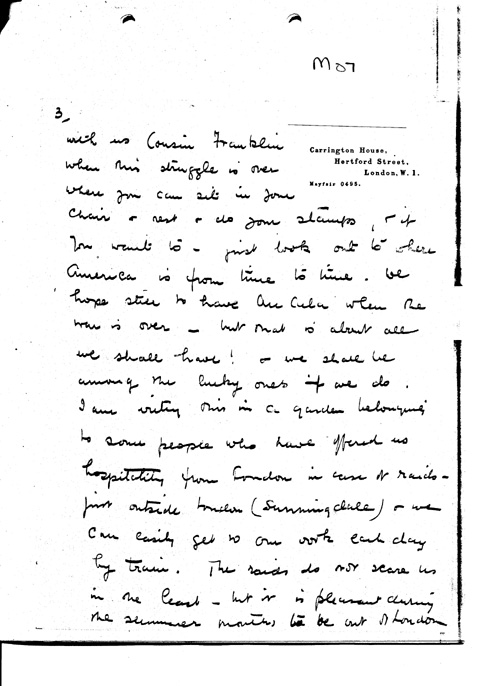 M07
3/
Carrington House,
Hertford Street,
London, W. 1.
Mayfair 0495.
with us Cousin Franklin
when this struggle is over
where you can sit in your
chair & rest & do your stamps, & if
you want to – just look out to where
America is from time to time. We
hope still to have                when the
war is over – but that is about all
we shall have! & we shall be
among the lucky ones if we do.
I am writing this in a garden belonging
to some people who have offered us
hospitality from London in case of raids –
just outside London (Sunningdale) & we
can easily get to our work each day
by train. The raids do not scare us
in the least – but it is pleasant during
the summer months to be out of London